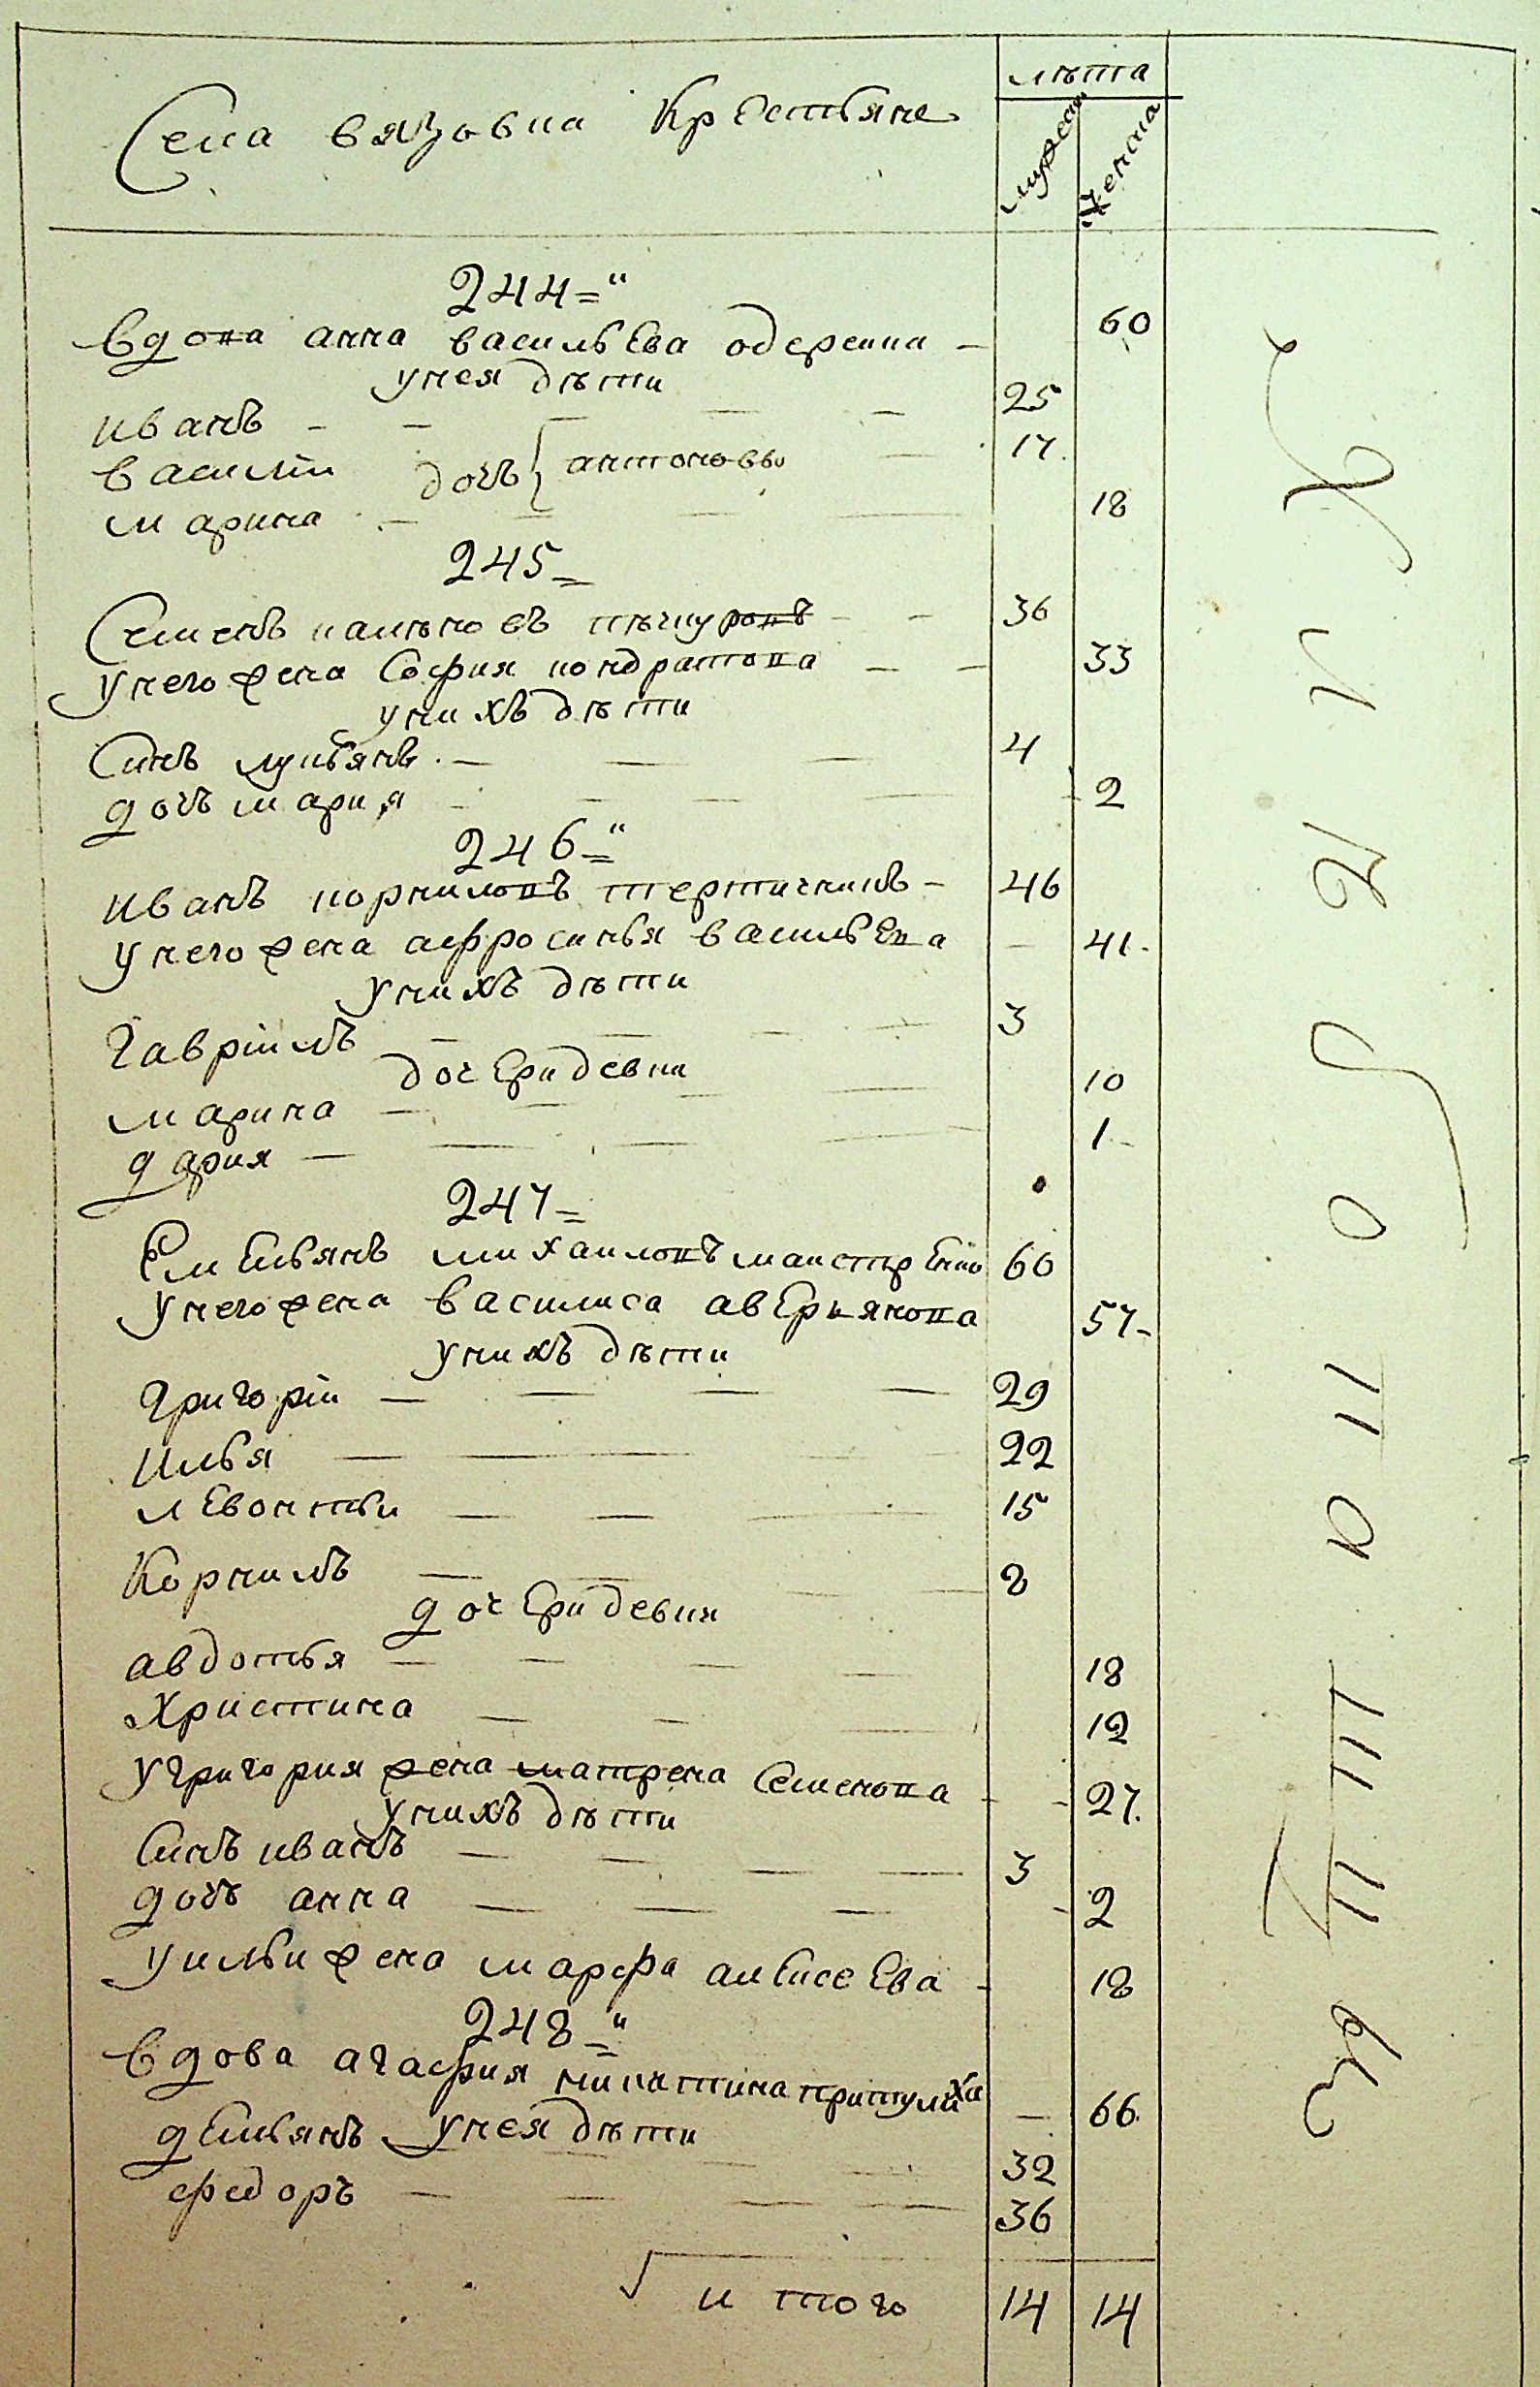 лѣта
Села вязовки Крестьяне
мужеск. женска
244=
вдова анна васильева одерекина — 60
унея дѣти
иванъ — 25
василiи дочь { антоновы — 17
марина — 18
245=
Семенъ павловъ пѣчнуровъ — 36
унего жена София кондратова — 33
унихъ дѣти
Синъ лукьянъ — 4
дочь мария — 2
246=
иванъ корниловъ тертичникъ — 46
унего жена афросинья васильева — 41
унихъ дѣти
Гаврiилъ — 3
дочери девки
марина — 10
дария — 1
247=
Емельянъ михаиловъ 60
унего жена василиса аверьянова 57
унихъ дѣти
Григорiи — 29
илья — 22
левонтьи — 15
Корнилъ — 8
дочери девки
авдотья — 18
Христина — 12
угригория жена матрена Семенова — 27
унихъ дѣти
Синъ иванъ — 3
дочь анна — 2
уильи жена марфа алексеева — 18
248=
вдова агафия никитина притулиха — 66
унея дѣти
демьянъ — 32
федоръ — 36
и того 14 14